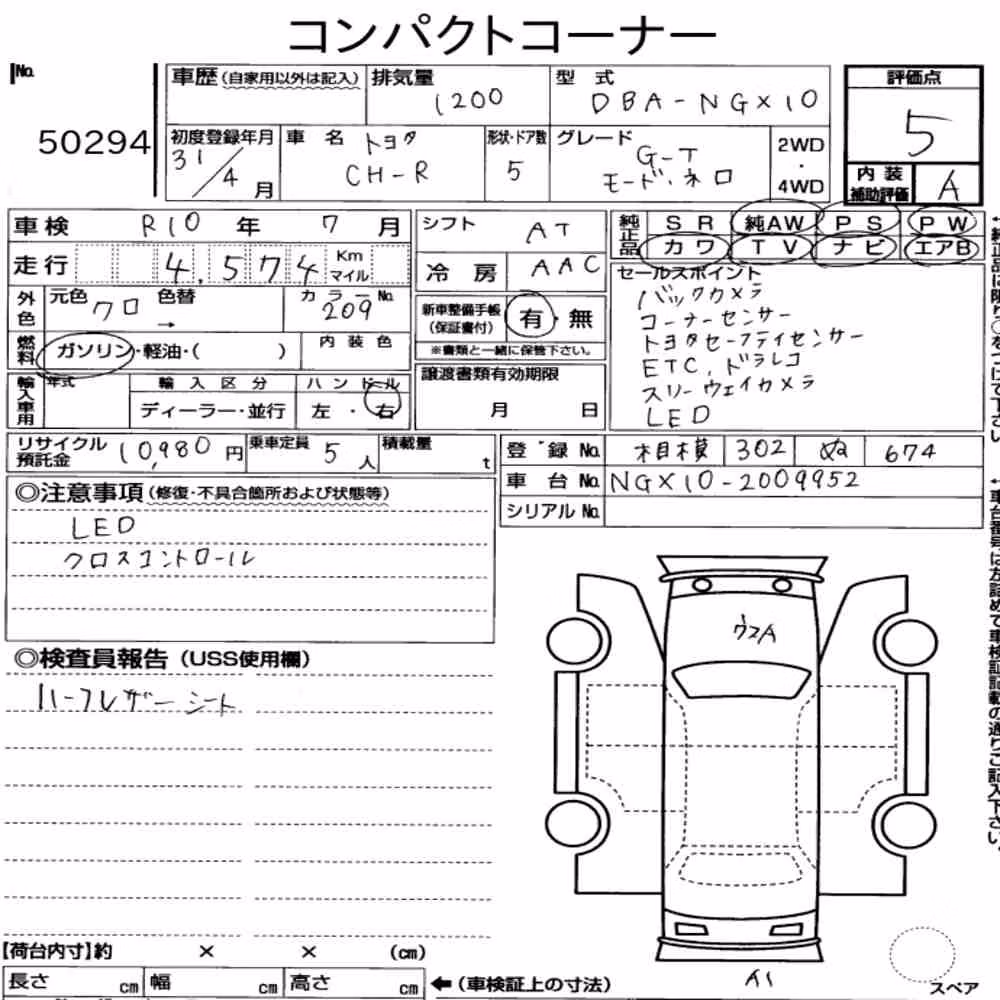 コンパクトコーナー
No.
50294
車歴 (自家用以外は記入)
排気量
1200
型式
DBA-NGX10
評価点
5
初度登録年月
31/4月
車名 トヨタ
CH-R
形状・ドア数
5
グレード
G-T
モード・ネロ
2WD
・
4WD
内装
補助評価
A
車検 R10年 7月
走行 4,574 Km
マイル
シフト AT
冷房 AAC
純正品
SR 純AW PS PW
カワ TV ナビ エアB
外色
元色 クロ 色替 →
カラーNo.
209
燃料
ガソリン・軽油・( )
内装色
新車整備手帳
(保証書付)
有・無
※書類と一緒に保管下さい。
セールスポイント
バックカメラ
コーナーセンサー
トヨタセーフティセンサー
ETC, ドラレコ
スリーウェイカメラ
LED
輸入車用
年式
輸入区分
ディーラー・並行
ハンドル
左・右
譲渡書類有効期限
月 日
リサイクル
預託金
10,980円
乗車定員 5人
積載量 t
登録No. 相模 302 ぬ 674
車台No. NGX10-2009952
シリアルNo.
◎注意事項 (修復・不具合箇所および状態等)
LED
クロスコントロール
◎検査員報告 (USS使用欄)
ハーフレザーシート
ウスA
A1
スペア
【荷台内寸】約 × × (cm)
長さ cm 幅 cm 高さ cm
←(車検証上の寸法)
←純正品に限り○をつけて下さい
←車台番号は左詰めで車検証記載の通りご記入下さい。